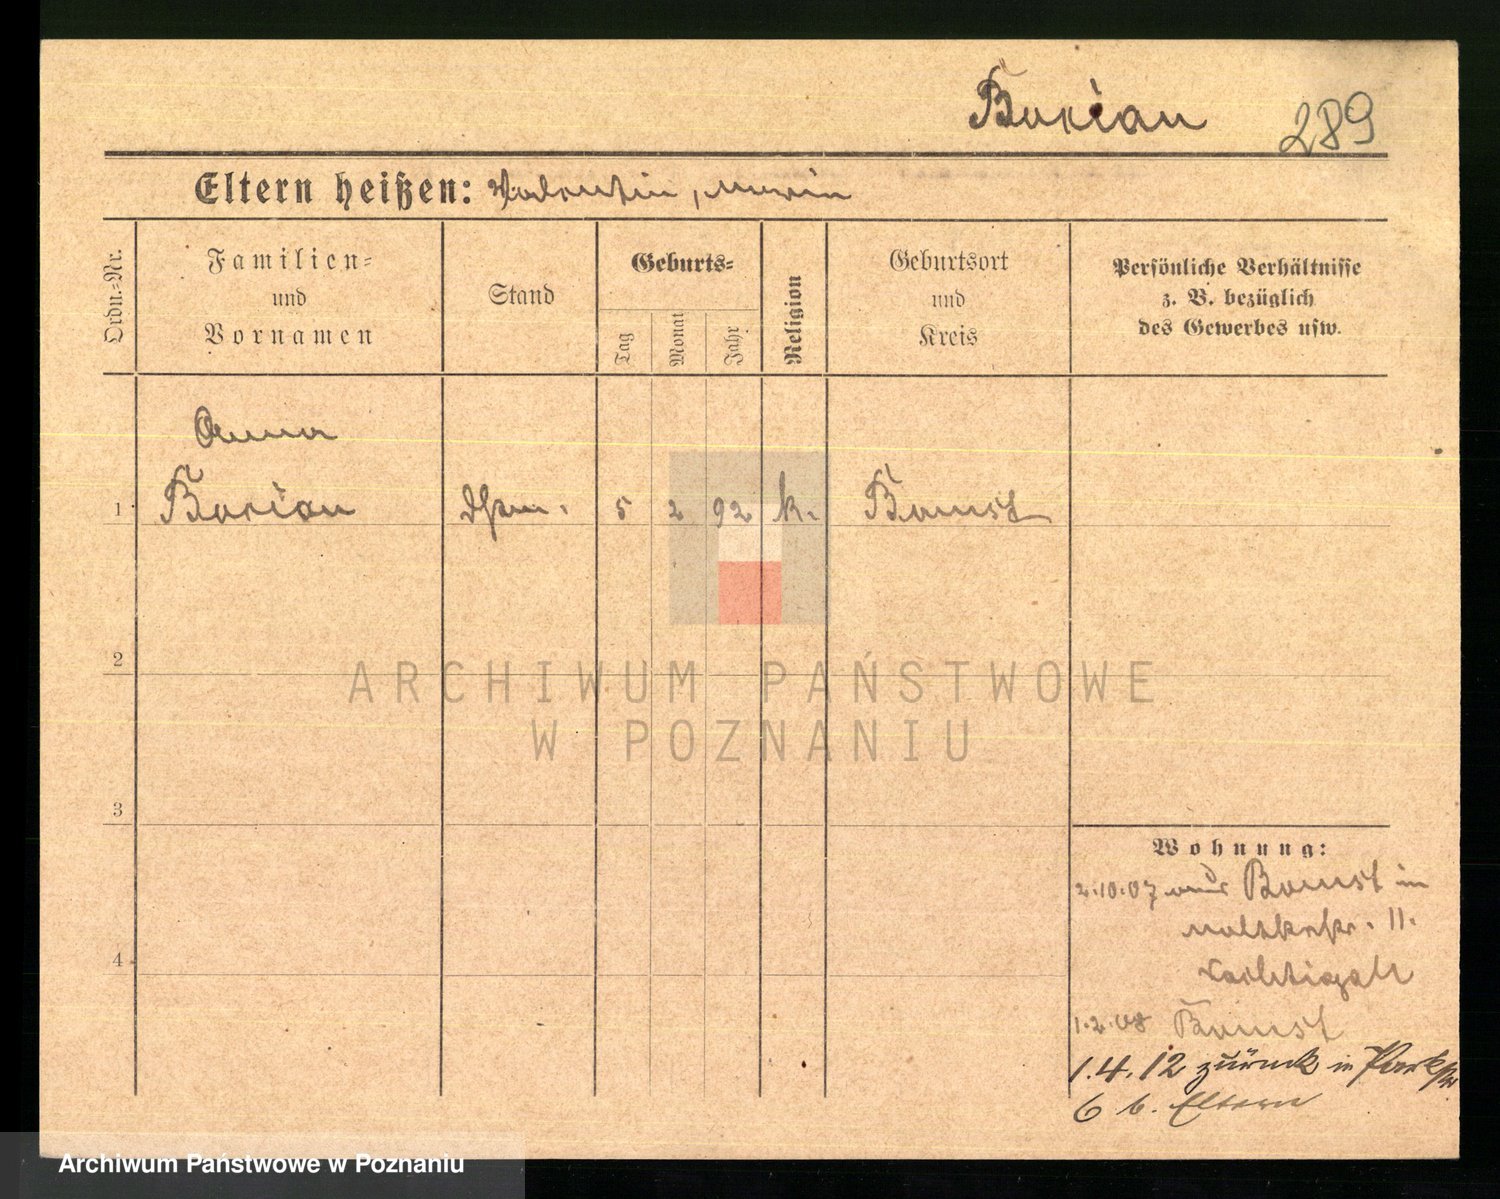 Burian 289
Eltern heißen: Valentin, Maria
Ordn.-Nr.
Familien-
und
Vornamen
Stand
Geburts-
Tag
Monat
Jahr
Religion
Geburtsort
und
Kreis
Persönliche Verhältnisse
z. B. bezüglich
des Gewerbes usw.
Anna
1 Burian 5 2 92 k. Bomst
2
3
4
ARCHIWUM PAŃSTWOWE
W POZNANIU
Wohnung:
2.10.07 aus Bomst in
Moltkestr. 11.
1.2.08 Bomst
1.4.12 zurück in Parkstr
6 b. Eltern
Archiwum Państwowe w Poznaniu